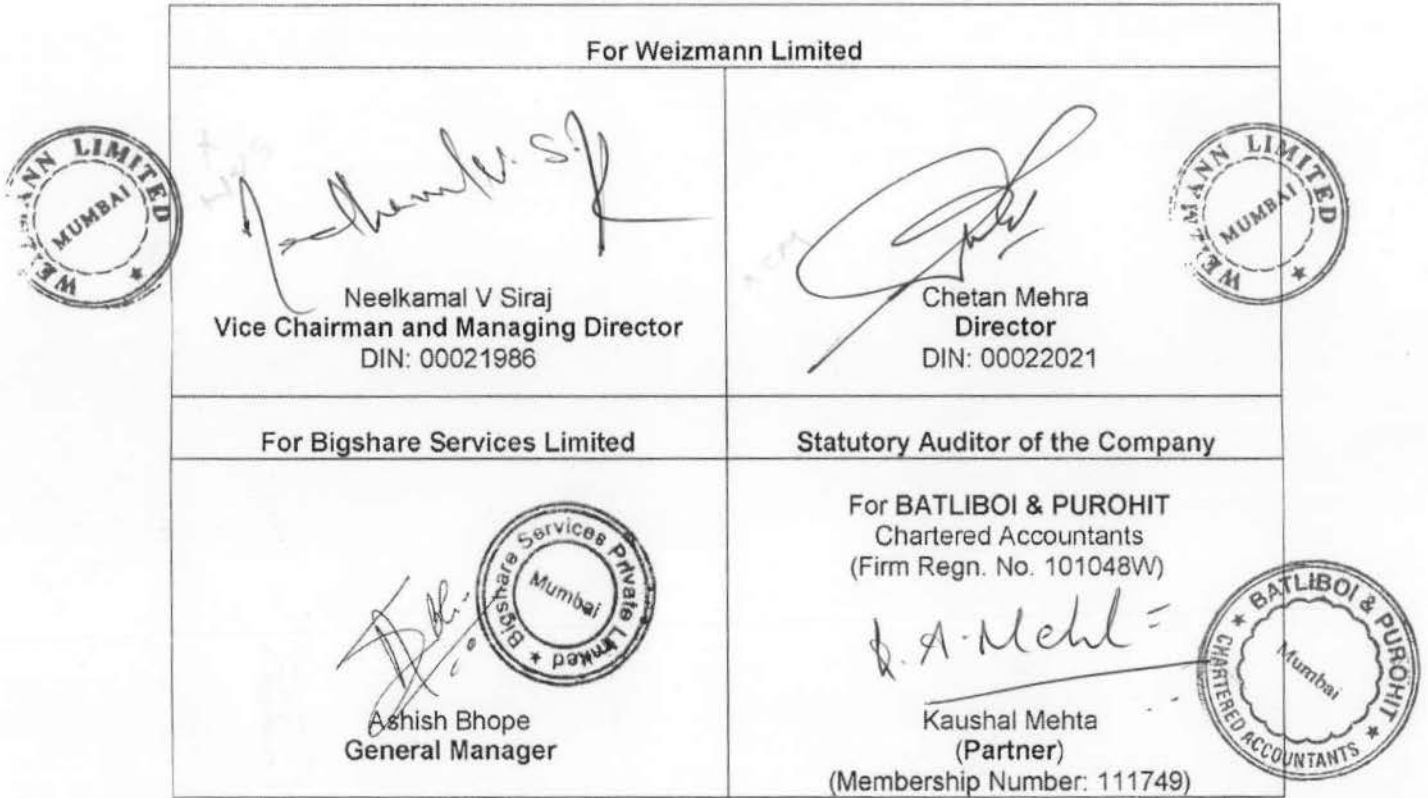 For Weizmann Limited
WEIZMANN LIMITED
MUMBAI
Neelkamal V Siraj
Vice Chairman and Managing Director
DIN: 00021986
Chetan Mehra
Director
DIN: 00022021
WEIZMANN LIMITED
MUMBAI
For Bigshare Services Limited
Statutory Auditor of the Company
Bigshare Services Private Limited
Mumbai
Ashish Bhope
General Manager
For BATLIBOI & PUROHIT
Chartered Accountants
(Firm Regn. No. 101048W)
K. A. Mehta
Kaushal Mehta
(Partner)
(Membership Number: 111749)
BATLIBOI & PUROHIT
CHARTERED ACCOUNTANTS
Mumbai